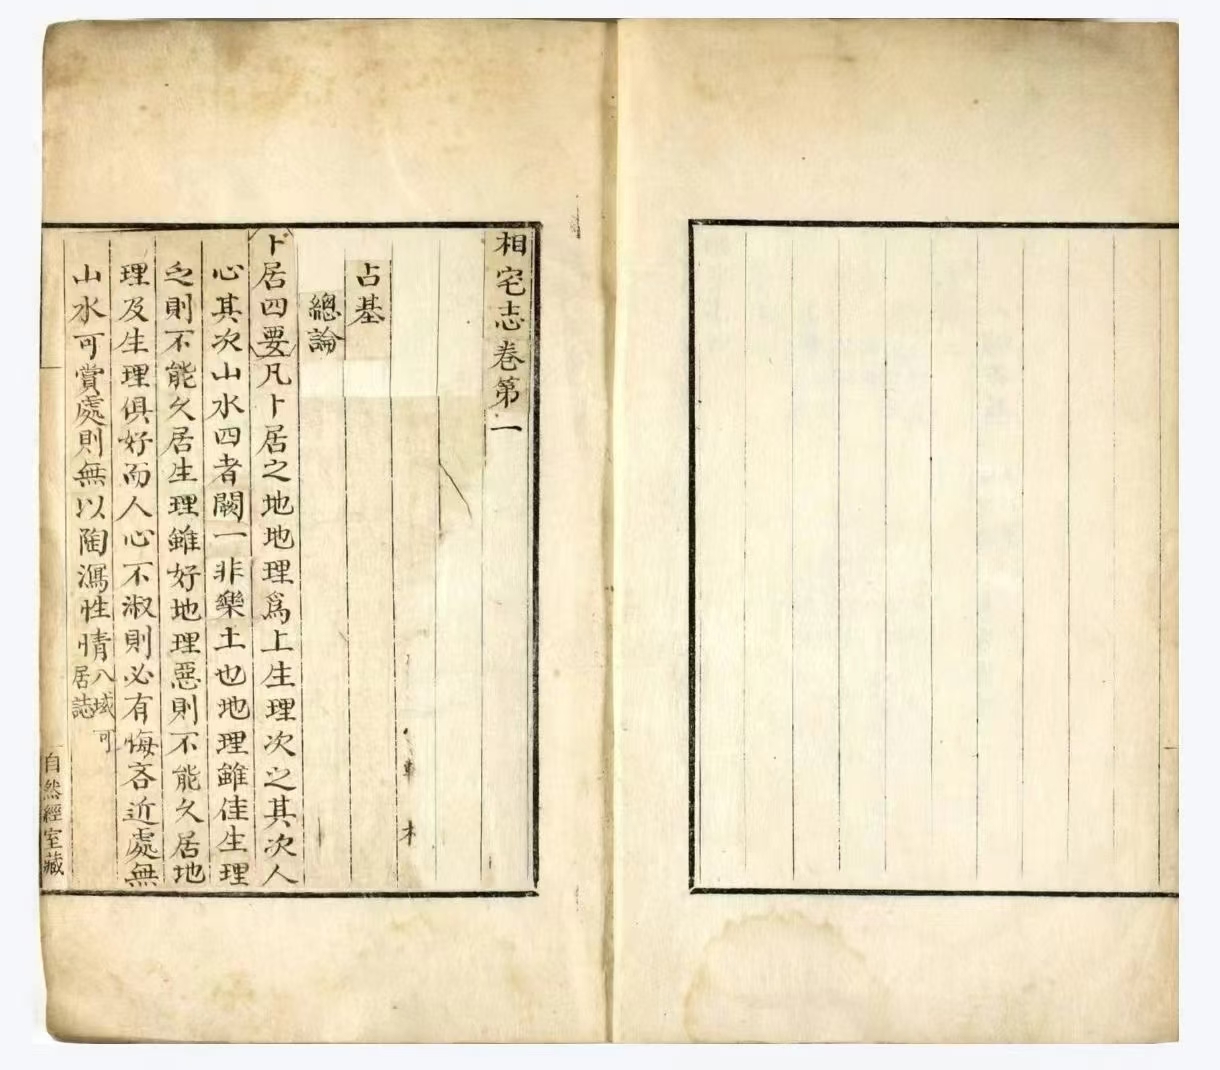 相宅志卷第一
占基
總論
卜居四要凡卜居之地地理爲上生理次之其次人
心其次山水四者闕一非樂土也地理雖佳生理
乏則不能久居生理雖好地理惡則不能久居地
理及生理俱好而人心不淑則必有悔吝近處無
山水可賞處則無以陶瀉性情八域可居誌
自然經室藏